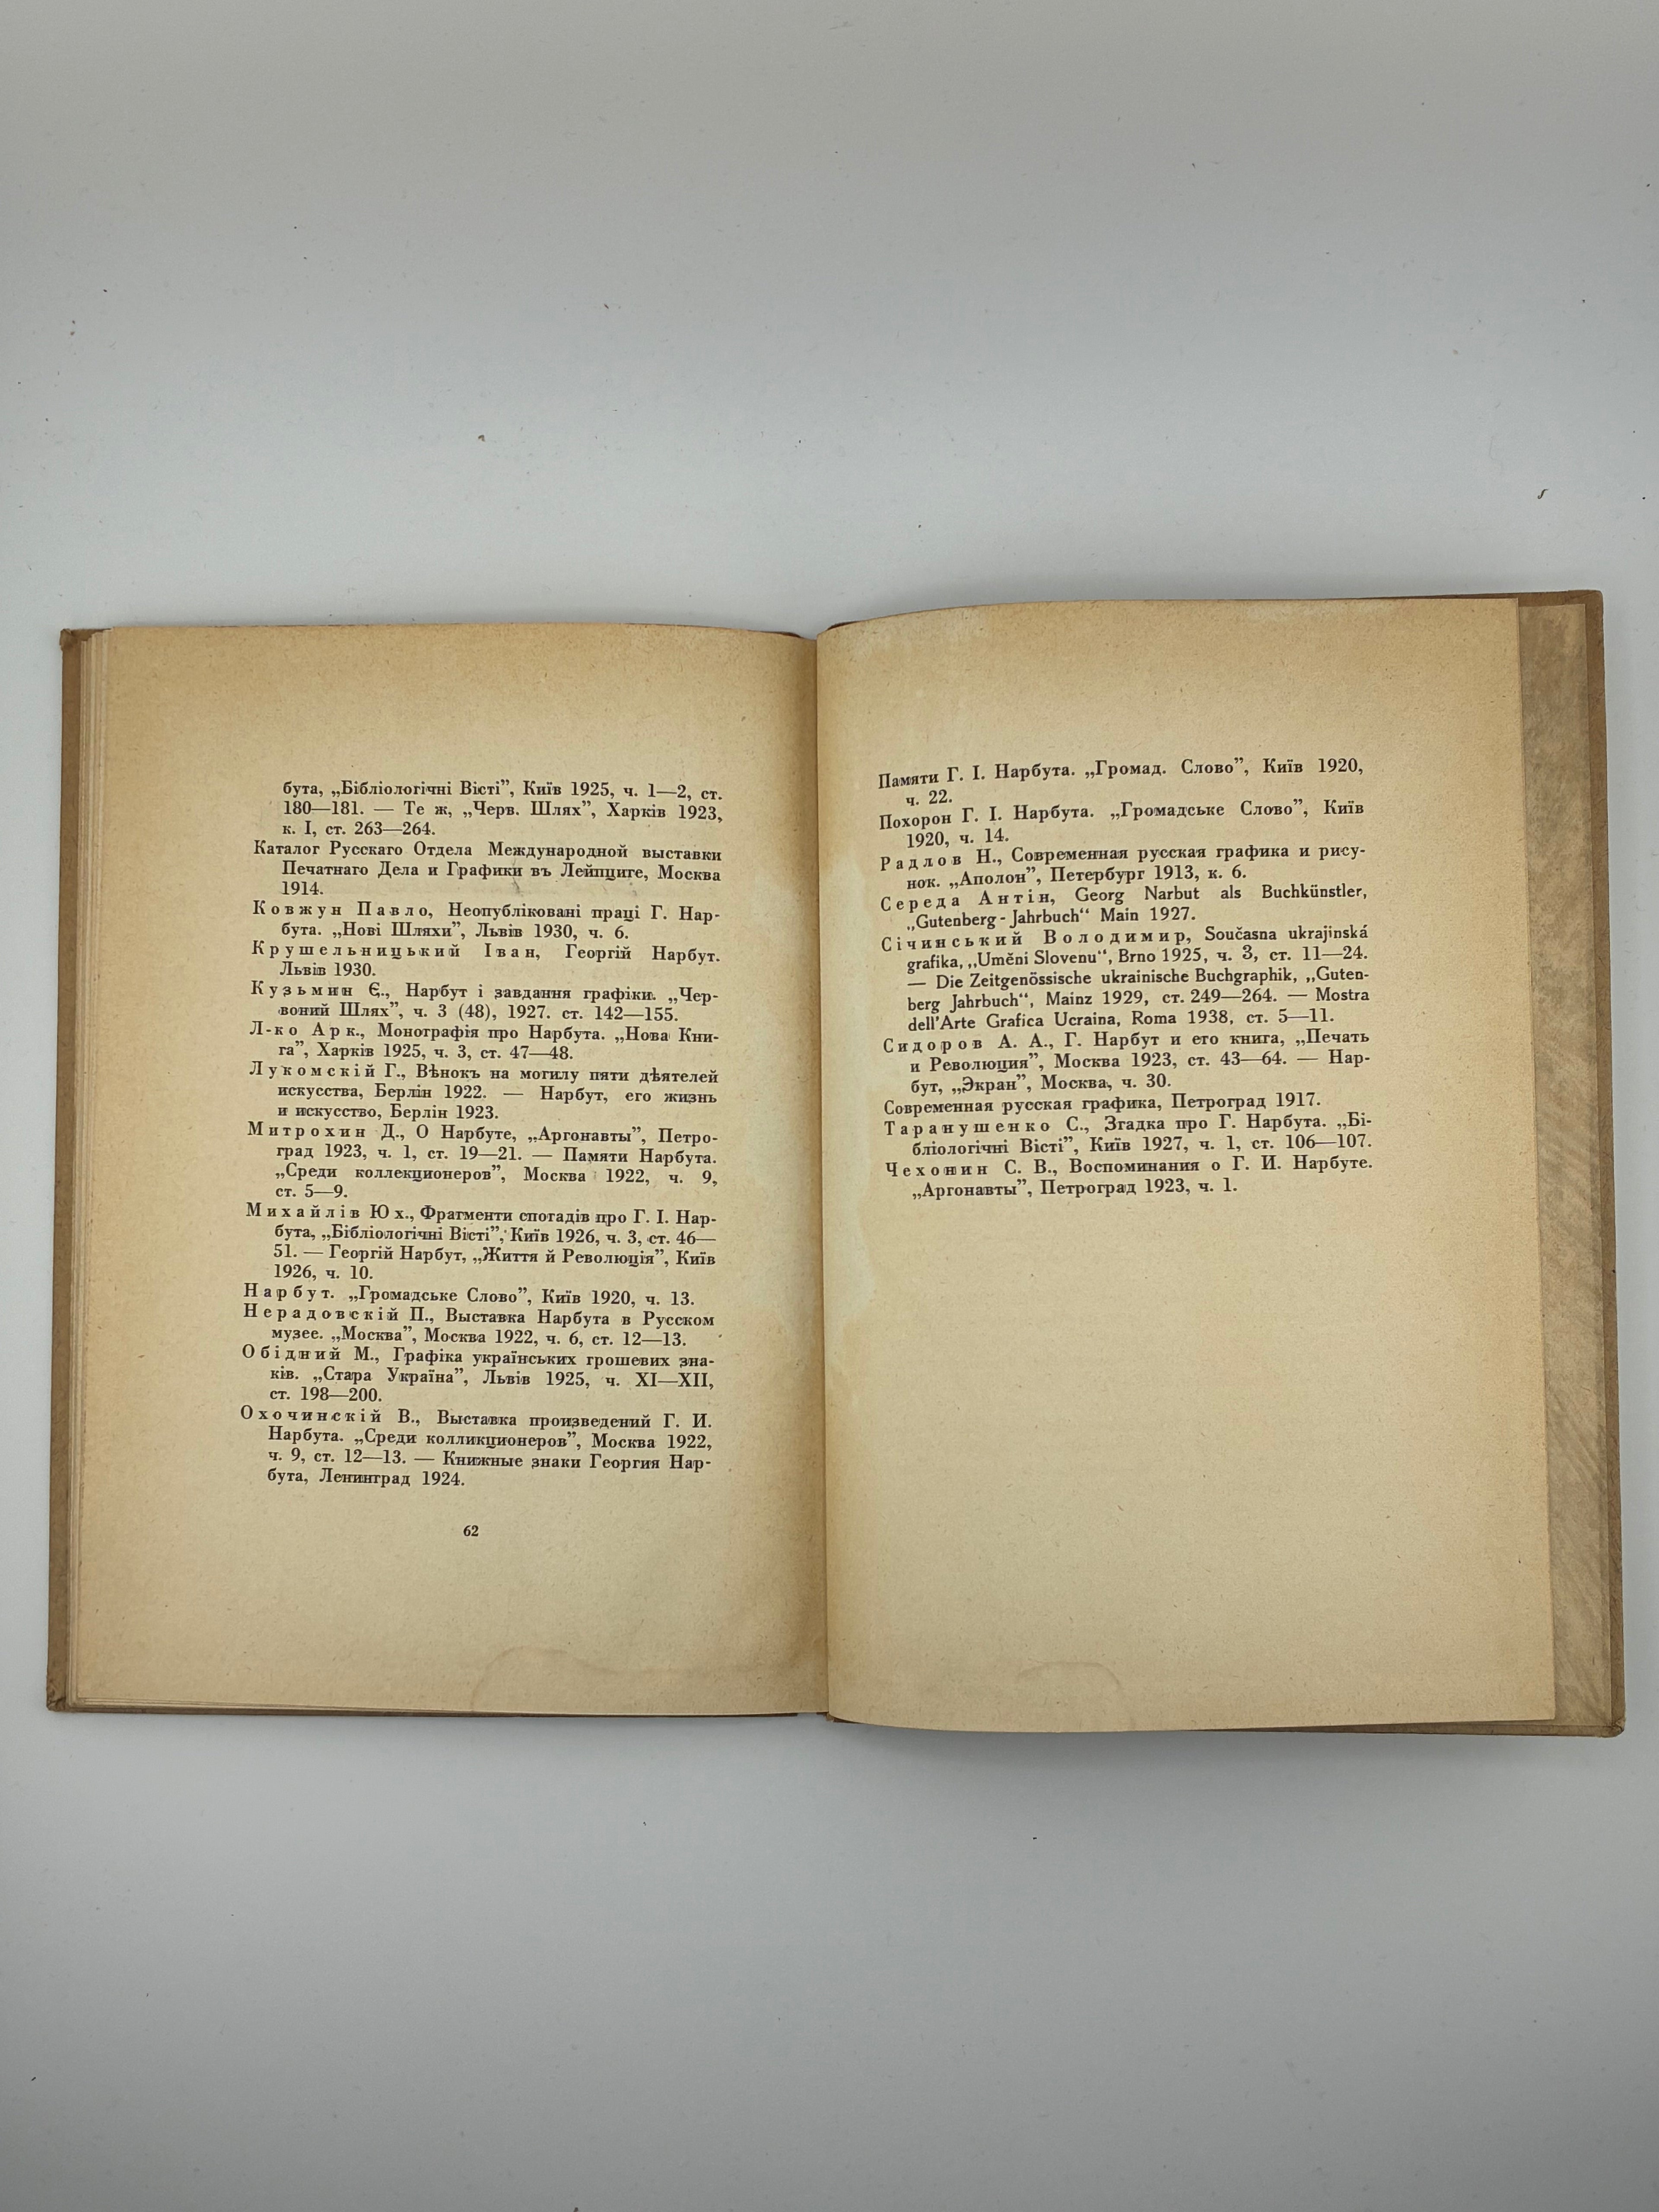 бута, „Бібліологічні Вісті”, Київ 1925, ч. 1—2, ст.
180—181. — Те ж, „Черв. Шлях”, Харків 1923,
к. I, ст. 263—264.
Каталог Русскаго Отдела Международной выставки
Печатнаго Дела и Графики въ Лейпциге, Москва
1914.
Ковжун Павло, Неопубліковані праці Г. Нар-
бута. „Нові Шляхи”, Львів 1930, ч. 6.
Крушельницький Іван, Георгій Нарбут.
Львів 1930.
Кузьмин Є., Нарбут і завдання графіки. „Чер-
воний Шлях”, ч. 3 (48), 1927. ст. 142—155.
Л-ко Арк., Монографія про Нарбута. „Нова Кни-
га”, Харків 1925, ч. 3, ст. 47—48.
Лукомскій Г., Вѣнокъ на могилу пяти дѣятелей
искусства, Берлін 1922. — Нарбут, его жизнь
и искусство, Берлін 1923.
Митрохин Д., О Нарбуте, „Аргонавты”, Петро-
град 1923, ч. 1, ст. 19—21. — Памяти Нарбута.
„Среди коллекционеров”, Москва 1922, ч. 9,
ст. 5—9.
Михайлів Юх., Фрагменти спогадів про Г. І. Нар-
бута, „Бібліологічні Вісті”, Київ 1926, ч. 3, ст. 46—
51. — Георгій Нарбут, „Життя й Революція”, Київ
1926, ч. 10.
Нарбут. „Громадське Слово”, Київ 1920, ч. 13.
Нерадовскій П., Выставка Нарбута в Русском
музее. „Москва”, Москва 1922, ч. 6, ст. 12—13.
Обідний М., Графіка українських грошевих зна-
ків. „Стара Україна”, Львів 1925, ч. XI—XII,
ст. 198—200.
Охочинскій В., Выставка произведений Г. И.
Нарбута. „Среди колликционеров”, Москва 1922,
ч. 9, ст. 12—13. — Книжные знаки Георгия Нар-
бута, Ленинград 1924.
62
Памяти Г. І. Нарбута. „Громад. Слово”, Київ 1920,
ч. 22.
Похорон Г. І. Нарбута. „Громадське Слово”, Київ
1920, ч. 14.
Радлов Н., Современная русская графика и рису-
нок. „Аполон”, Петербург 1913, к. 6.
Середа Антін, Georg Narbut als Buchkünstler,
„Gutenberg-Jahrbuch“ Main 1927.
Січинський Володимир, Současna ukrajinská
grafika, „Uměni Slovenu“, Brno 1925, ч. 3, ст. 11—24.
— Die Zeitgenössische ukrainische Buchgraphik, „Guten-
berg Jahrbuch“, Mainz 1929, ст. 249—264. — Mostra
dell’Arte Grafica Ucraina, Roma 1938, ст. 5—11.
Сидоров А. А., Г. Нарбут и его книга, „Печать
и Революция”, Москва 1923, ст. 43—64. — Нар-
бут, „Экран”, Москва, ч. 30.
Современная русская графика, Петроград 1917.
Таранушенко С., Згадка про Г. Нарбута. „Бі-
бліологічні Вісті”, Київ 1927, ч. 1, ст. 106—107.
Чехонин С. В., Воспоминания о Г. И. Нарбуте.
„Аргонавты”, Петроград 1923, ч. 1.